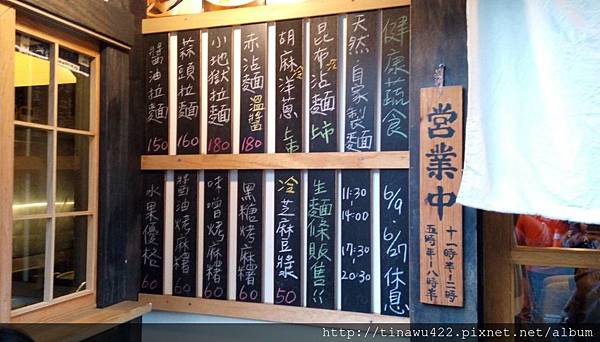 健康蔬食
天然、自家製麵
昆布沾麵 上市
胡麻洋蔥 冷 上市
赤沾麵 溫醬 180
小地獄拉麵 180
蒜頭拉麵 160
醬油拉麵 150
6/9、6/27休息
11:30-14:00
17:30-20:30
生麵條販售
冷芝麻豆漿 50
黑糖烤麻糬 60
味噌烤麻糬 60
醬油烤麻糬 60
水果優格 60
営業中
十一時半-二時
五時半-八時半
http://tinawu422.pixnet.net/album